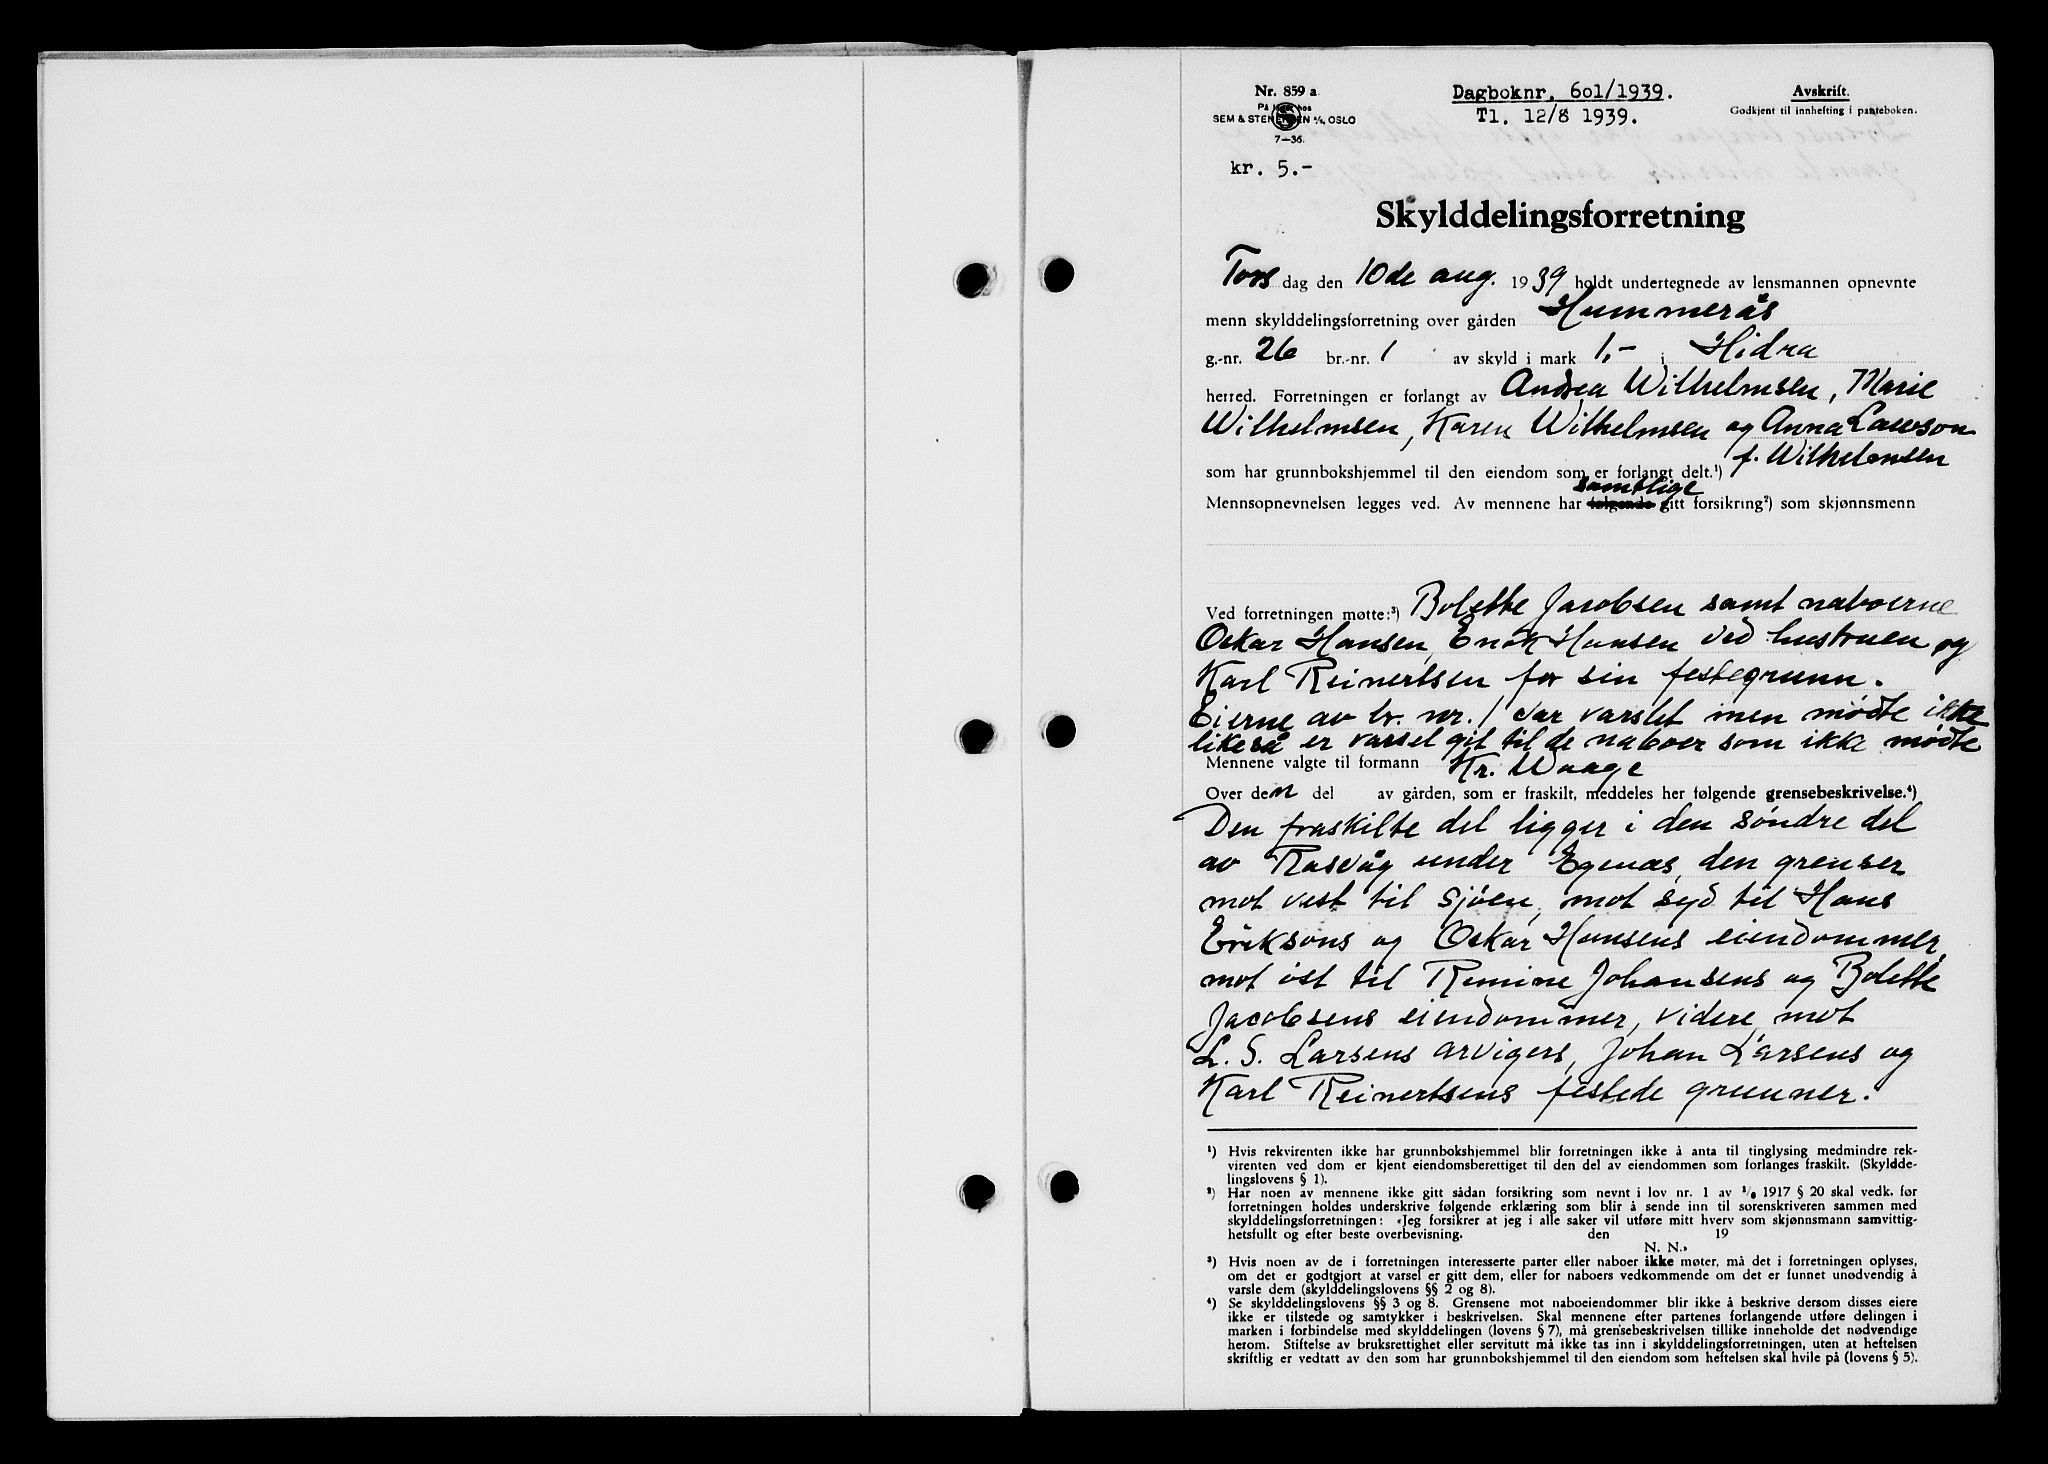 Nr. 859 a
På lager hos
SEM & STENERSEN A/S, OSLO
7—36.
kr. 5.-
Dagboknr. 601/1939.
Tl. 12/8 1939.
Avskrift.
Godkjent til innhefting i panteboken.
Skylddelingsforretning
Tors dag den 10de aug. 1939 holdt undertegnede av lensmannen opnevnte
menn skylddelingsforretning over gården Hummerås
g.-nr. 26 br.-nr. 1 av skyld i mark 1,- i Hidra
herred. Forretningen er forlangt av Andrea Wilhelmsen, Marie
Wilhelmsen, Karen Wilhelmsen og Anna Lawson
f. Wilhelmsen
som har grunnbokshjemmel til den eiendom som er forlangt delt.¹)
samtlige
Mennsopnevnelsen legges ved. Av mennene har følgende gitt forsikring²) som skjønnsmenn
Ved forretningen møtte:³) Bolette Jacobsen samt naboerne
Oskar Hansen, Enok Hansen ved hustruen og
Karl Reinertsen for sin festegrunn.
Eierne av br. nr. 1 var varslet men mødte ikke
likeså er varsel git til de naboer som ikke mødte
Mennene valgte til formann Kr. Waage
Over den del av gården, som er fraskilt, meddeles her følgende grensebeskrivelse.⁴)
Den fraskilte del ligger i den søndre del
av Rasvåg under Egenæs, den grenser
mot vest til sjøen, mot syd til Hans
Eriksons og Oskar Hansens eiendommer,
mot øst til Remine Johansens og Bolette
Jacobsens eiendommer, videre mot
L. S. Larsens arvigers, Johan Larsens og
Karl Reinertsens festede grunner.
¹) Hvis rekvirenten ikke har grunnbokshjemmel blir forretningen ikke å anta til tinglysing medmindre rek-
virenten ved dom er kjent eiendomsberettiget til den del av eiendommen som forlanges fraskilt. (Skyldde-
lingslovens § 1).
²) Har noen av mennene ikke gitt sådan forsikring som nevnt i lov nr. 1 av 1/6 1917 § 20 skal vedk. før
forretningen holdes underskrive følgende erklæring som blir å sende inn til sorenskriveren sammen med
skylddelingsforretningen: «Jeg forsikrer at jeg i alle saker vil utføre mitt hverv som skjønnsmann samvittig-
hetsfullt og efter beste overbevisning. den 19
N. N.»
³) Hvis noen av de i forretningen interesserte parter eller naboer ikke møter, må det i forretningen oplyses,
om det er godtgjort at varsel er gitt dem, eller for naboers vedkommende om det er funnet unødvendig å
varsle dem (skylddelingslovens §§ 2 og 8).
⁴) Se skylddelingslovens §§ 3 og 8. Grensene mot naboeiendommer blir ikke å beskrive dersom disses eiere
ikke er tilstede og samtykker i beskrivelsen. Skal mennene efter partenes forlangende utføre delingen i
marken i forbindelse med skylddelingen (lovens § 7), må grensebeskrivelsen tillike inneholde det nødvendige
herom. Stiftelse av bruksrettighet eller servitutt må ikke tas inn i skylddelingsforretningen, uten at heftelsen
skriftlig er vedtatt av den som har grunnbokshjemmel til den eiendom som heftelsen skal hvile på (lovens § 5).